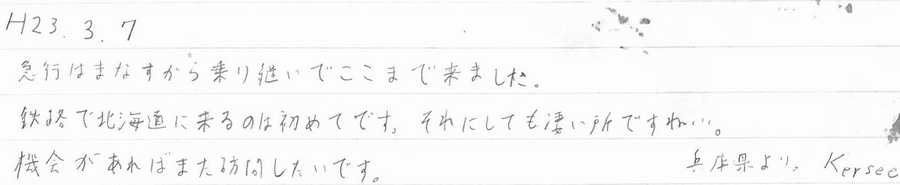 H23.3.7
急行はまなすから乗り継いでここまで来ました。
鉄路で北海道に来るのは初めてです。それにしても凄い所ですねぃ。
機会があればまた訪問したいです。 兵庫県より、Kersec